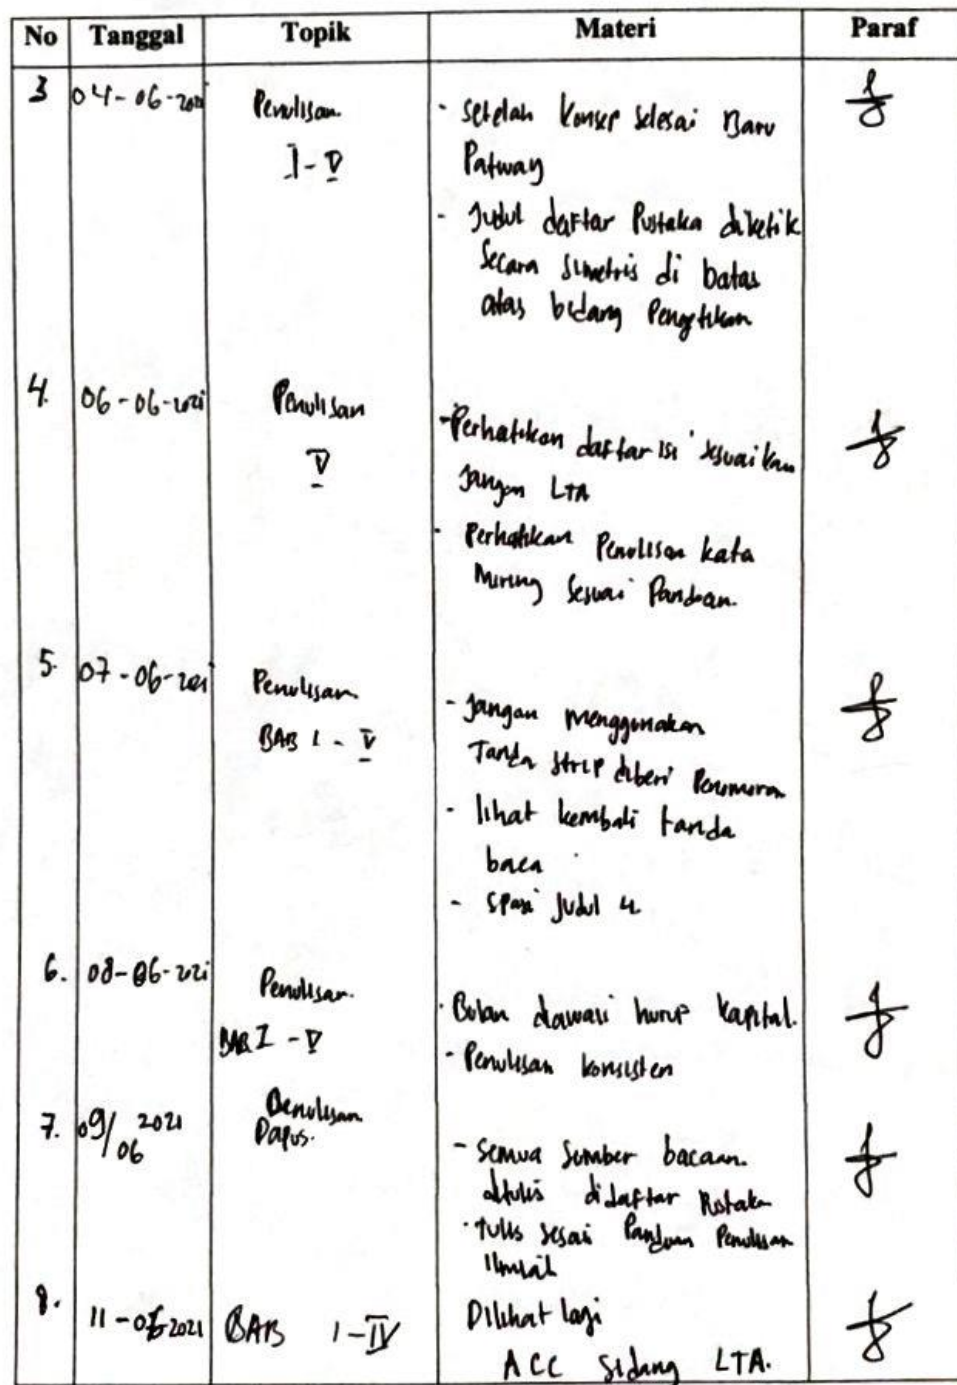 No Tanggal Topik Materi Paraf
3 04-06-2021 Penulisan - setelah konsep selesai Baru
I - V Patway
- Judul daftar Pustaka diketik
secara simetris di batas
atas bidang Pengetikan
4. 06-06-2021 Penulisan - Perhatikan daftar isi sesuaikan
V jangan LTA
- Perhatikan Penulisan kata
Miring sesuai Panduan.
5. 07-06-2021 Penulisan - Jangan menggunakan
BAB I - V Tanda strip diberi Penomoran
- lihat kembali tanda
baca
- spasi Judul 4
6. 08-06-2021 Penulisan. - Bulan diawali hurup kapital.
BAB I - V - Penulisan konsisten
7. 09/06 2021 Penulisan - semua sumber bacaan.
Dapus. ditulis didaftar Pustaka
- tulis sesai Panduan Penulisan
Ilmiah
8. 11-06-2021 BAB I-IV Dilihat lagi
ACC sidang LTA.